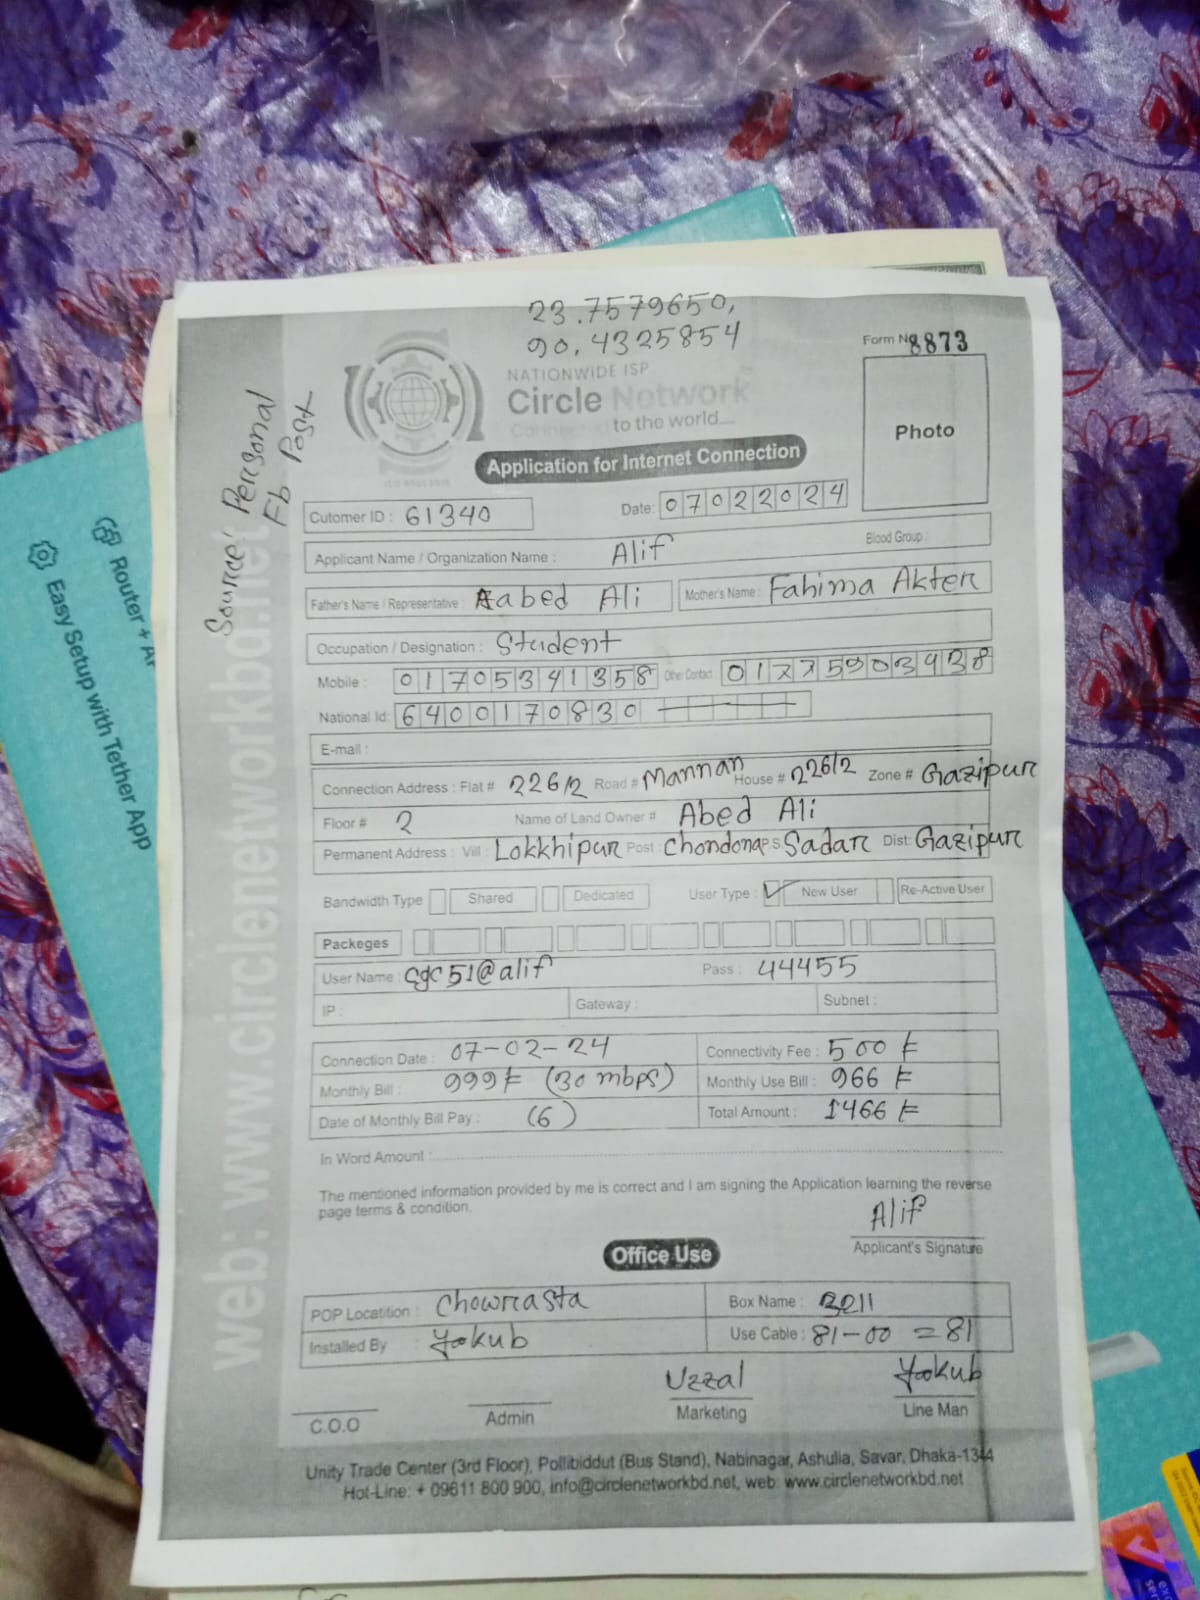 23.7579650,
90.4325854
Form No 8873
NATIONWIDE ISP
Circle Network
Connected to the world....
Photo
Application for Internet Connection
Source: Personal
Fb Post
Cutomer ID : 61340
Date: 07022024
Applicant Name / Organization Name : Alif
Blood Group :
Father's Name / Representative : Aabed Ali
Mother's Name : Fahima Akter
Occupation / Designation : Student
Mobile : 01705341358 Other Contact : 01775903438
National Id: 6400170830
E-mail :
Connection Address : Flat # 226/2 Road # Mannan House # 226/2 Zone # Gazipur
Floor # 2 Name of Land Owner # Abed Ali
Permanent Address : Vill : Lokkhipur Post : Chondona P.S Sadar Dist: Gazipur
Bandwidth Type Shared Dedicated User Type : ✓ New User Re-Active User
Packeges
User Name : cgc51@alif Pass : 44455
IP : Gateway : Subnet :
Connection Date : 07-02-24 Connectivity Fee : 500 ৳
Monthly Bill : 999৳ (30 mbps) Monthly Use Bill : 966 ৳
Date of Monthly Bill Pay : (6) Total Amount : 1466 ৳
In Word Amount :
The mentioned information provided by me is correct and I am signing the Application learning the reverse
page terms & condition.
Alif
Applicant's Signature
Office Use
POP Locatition : Chowrasta Box Name : 3211
Installed By : Yokub Use Cable : 81-00 = 81
Uzzal Yookub
C.O.O Admin Marketing Line Man
Unity Trade Center (3rd Floor), Pollibiddut (Bus Stand), Nabinagar, Ashulia, Savar, Dhaka-1344
Hot-Line: + 09611 800 900, info@circlenetworkbd.net, web: www.circlenetworkbd.net
web: www.circlenetworkbd.net
Router +
Easy Setup with Tether App